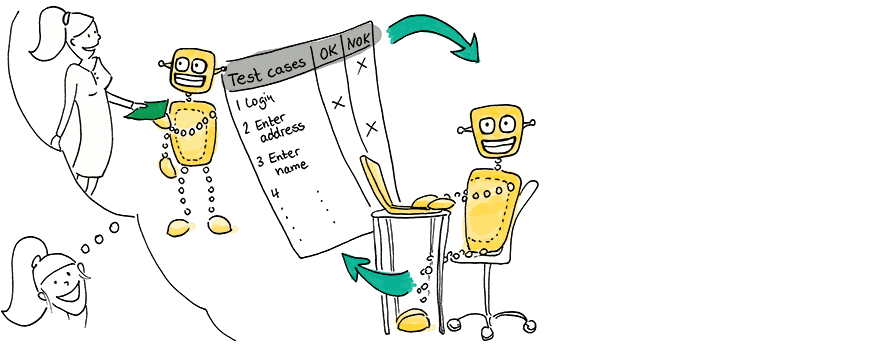 Test cases OK NOK
X
1 Login
X
2 Enter
address
X
3 Enter
name
4